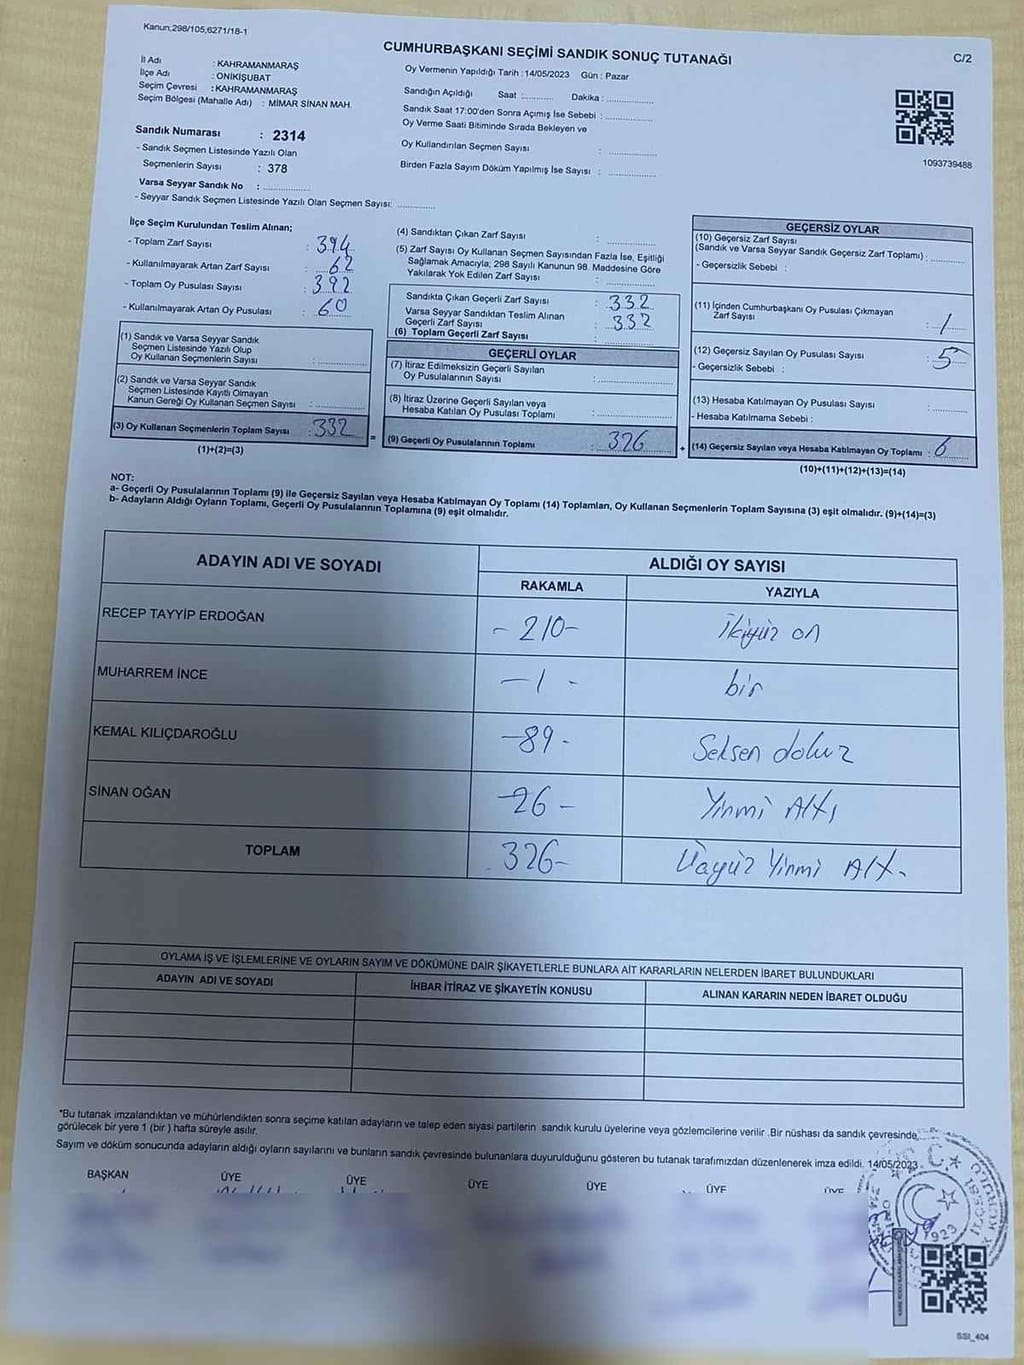 Kanun,298/105,6271/18-1
CUMHURBAŞKANI SEÇİMİ SANDIK SONUÇ TUTANAĞI
C/2
İl Adı : KAHRAMANMARAŞ
İlçe Adı : ONİKİŞUBAT
Seçim Çevresi : KAHRAMANMARAŞ
Seçim Bölgesi (Mahalle Adı) : MİMAR SİNAN MAH.
Sandık Numarası : 2314
- Sandık Seçmen Listesinde Yazılı Olan
Seçmenlerin Sayısı : 378
Varsa Seyyar Sandık No : ............
- Seyyar Sandık Seçmen Listesinde Yazılı Olan Seçmen Sayısı: ............
Oy Vermenin Yapıldığı Tarih : 14/05/2023 Gün : Pazar
Sandığın Açıldığı Saat :.......... Dakika : ................
Sandık Saat 17:00'den Sonra Açımış İse Sebebi : ................
Oy Verme Saati Bitiminde Sırada Bekleyen ve
Oy Kullandırılan Seçmen Sayısı : ................
Birden Fazla Sayım Döküm Yapılmış İse Sayısı : ................
1093739488
İlçe Seçim Kurulundan Teslim Alınan;
- Toplam Zarf Sayısı : 394
- Kullanılmayarak Artan Zarf Sayısı : 62
- Toplam Oy Pusulası Sayısı : 392
- Kullanılmayarak Artan Oy Pusulası : 60
(1) Sandık ve Varsa Seyyar Sandık
Seçmen Listesinde Yazılı Olup
Oy Kullanan Seçmenlerin Sayısı : ................
(2) Sandık ve Varsa Seyyar Sandık
Seçmen Listesinde Kayıtlı Olmayan
Kanun Gereği Oy Kullanan Seçmen Sayısı : ................
(3) Oy Kullanan Seçmenlerin Toplam Sayısı : 332
(1)+(2)=(3)
=
(4) Sandıktan Çıkan Zarf Sayısı : ................
(5) Zarf Sayısı Oy Kullanan Seçmen Sayısından Fazla İse, Eşitliği
Sağlamak Amacıyla; 298 Sayılı Kanunun 98. Maddesine Göre
Yakılarak Yok Edilen Zarf Sayısı : ................
Sandıkta Çıkan Geçerli Zarf Sayısı : 332
Varsa Seyyar Sandıktan Teslim Alınan
Geçerli Zarf Sayısı : 332
(6) Toplam Geçerli Zarf Sayısı : ................
GEÇERLİ OYLAR
(7) İtiraz Edilmeksizin Geçerli Sayılan
Oy Pusulalarının Sayısı : ................
(8) İtiraz Üzerine Geçerli Sayılan veya
Hesaba Katılan Oy Pusulası Toplamı : ................
(9) Geçerli Oy Pusulalarının Toplamı : 326
+
GEÇERSİZ OYLAR
(10) Geçersiz Zarf Sayısı
(Sandık ve Varsa Seyyar Sandık Geçersiz Zarf Toplamı) : ............
- Geçersizlik Sebebi :
(11) İçinden Cumhurbaşkanı Oy Pusulası Çıkmayan
Zarf Sayısı : 1
(12) Geçersiz Sayılan Oy Pusulası Sayısı : 5
- Geçersizlik Sebebi :
(13) Hesaba Katılmayan Oy Pusulası Sayısı : ............
- Hesaba Katılmama Sebebi :
(14) Geçersiz Sayılan veya Hesaba Katılmayan Oy Toplamı : 6
(10)+(11)+(12)+(13)=(14)
NOT:
a- Geçerli Oy Pusulalarının Toplamı (9) ile Geçersiz Sayılan veya Hesaba Katılmayan Oy Toplamı (14) Toplamları, Oy Kullanan Seçmenlerin Toplam Sayısına (3) eşit olmalıdır. (9)+(14)=(3)
b- Adayların Aldığı Oyların Toplamı, Geçerli Oy Pusulalarının Toplamına (9) eşit olmalıdır.
ADAYIN ADI VE SOYADI ALDIĞI OY SAYISI
RAKAMLA YAZIYLA
RECEP TAYYİP ERDOĞAN - 210- ikiyüz on
MUHARREM İNCE -1- bir
KEMAL KILIÇDAROĞLU -89- Seksen dokuz
SİNAN OĞAN -26- Yirmi Altı
TOPLAM 326- Üçyüz Yirmi Altı
OYLAMA İŞ VE İŞLEMLERİNE VE OYLARIN SAYIM VE DÖKÜMÜNE DAİR ŞİKAYETLERLE BUNLARA AİT KARARLARIN NELERDEN İBARET BULUNDUKLARI
ADAYIN ADI VE SOYADI İHBAR İTİRAZ VE ŞİKAYETİN KONUSU ALINAN KARARIN NEDEN İBARET OLDUĞU
*Bu tutanak imzalandıktan ve mühürlendikten sonra seçime katılan adayların ve talep eden siyasi partilerin sandık kurulu üyelerine veya gözlemcilerine verilir .Bir nüshası da sandık çevresinde,
görülecek bir yere 1 (bir ) hafta süreyle asılır.
Sayım ve döküm sonucunda adayların aldığı oyların sayılarını ve bunların sandık çevresinde bulunanlara duyurulduğunu gösteren bu tutanak tarafımızdan düzenlenerek imza edildi. 14/05/2023
BAŞKAN ÜYE ÜYE ÜYE ÜYE ÜYE ÜYE
1923
SSI_404